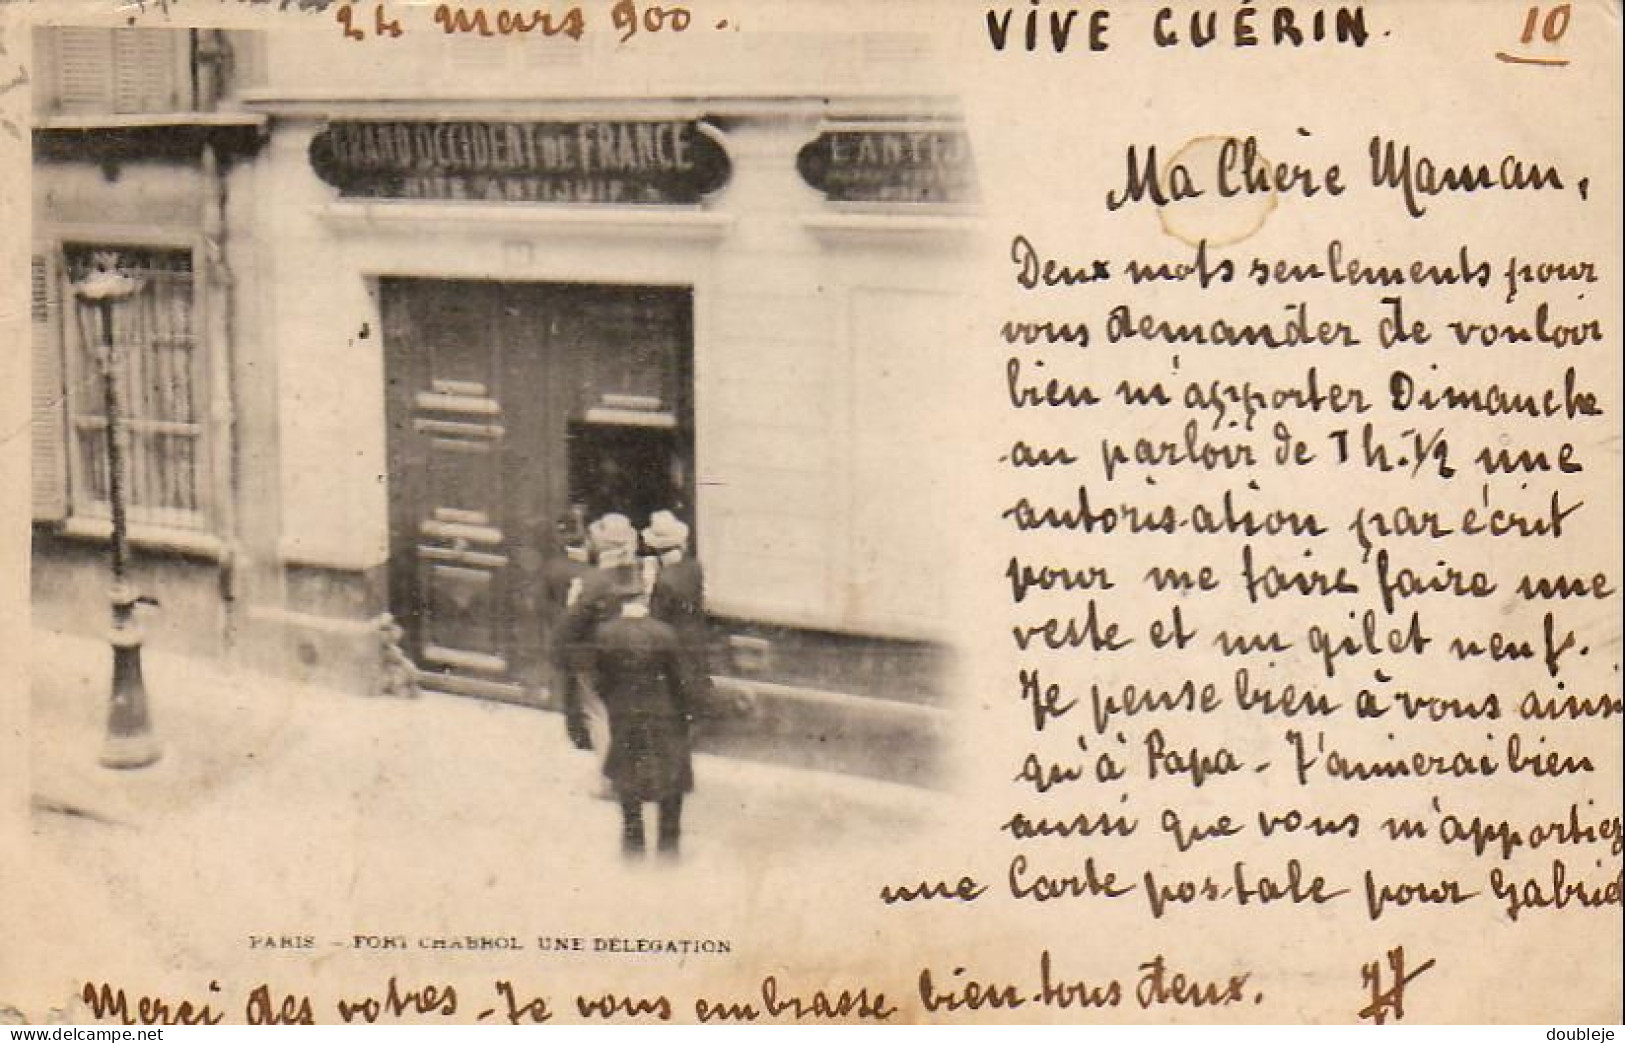 24 mars 900.
VIVE GUÉRIN.
10
GRAND OCCIDENT DE FRANCE
RITE ANTIJUIF
L'ANTIJ
Ma Chère Maman,
Deux mots seulements pour
vous demander de vouloir
bien m'apporter Dimanche
au parloir de 1h.1/2 une
autorisation par écrit
pour me faire faire une
veste et un gilet neuf.
Je pense bien à vous ainsi
qu'à Papa - J'aimerai bien
aussi que vous m'apportiez
une Carte postale pour Gabriel
PARIS - FORT CHABROL UNE DÉLÉGATION
Merci des votres - Je vous embrasse bien tous deux.
doubleje